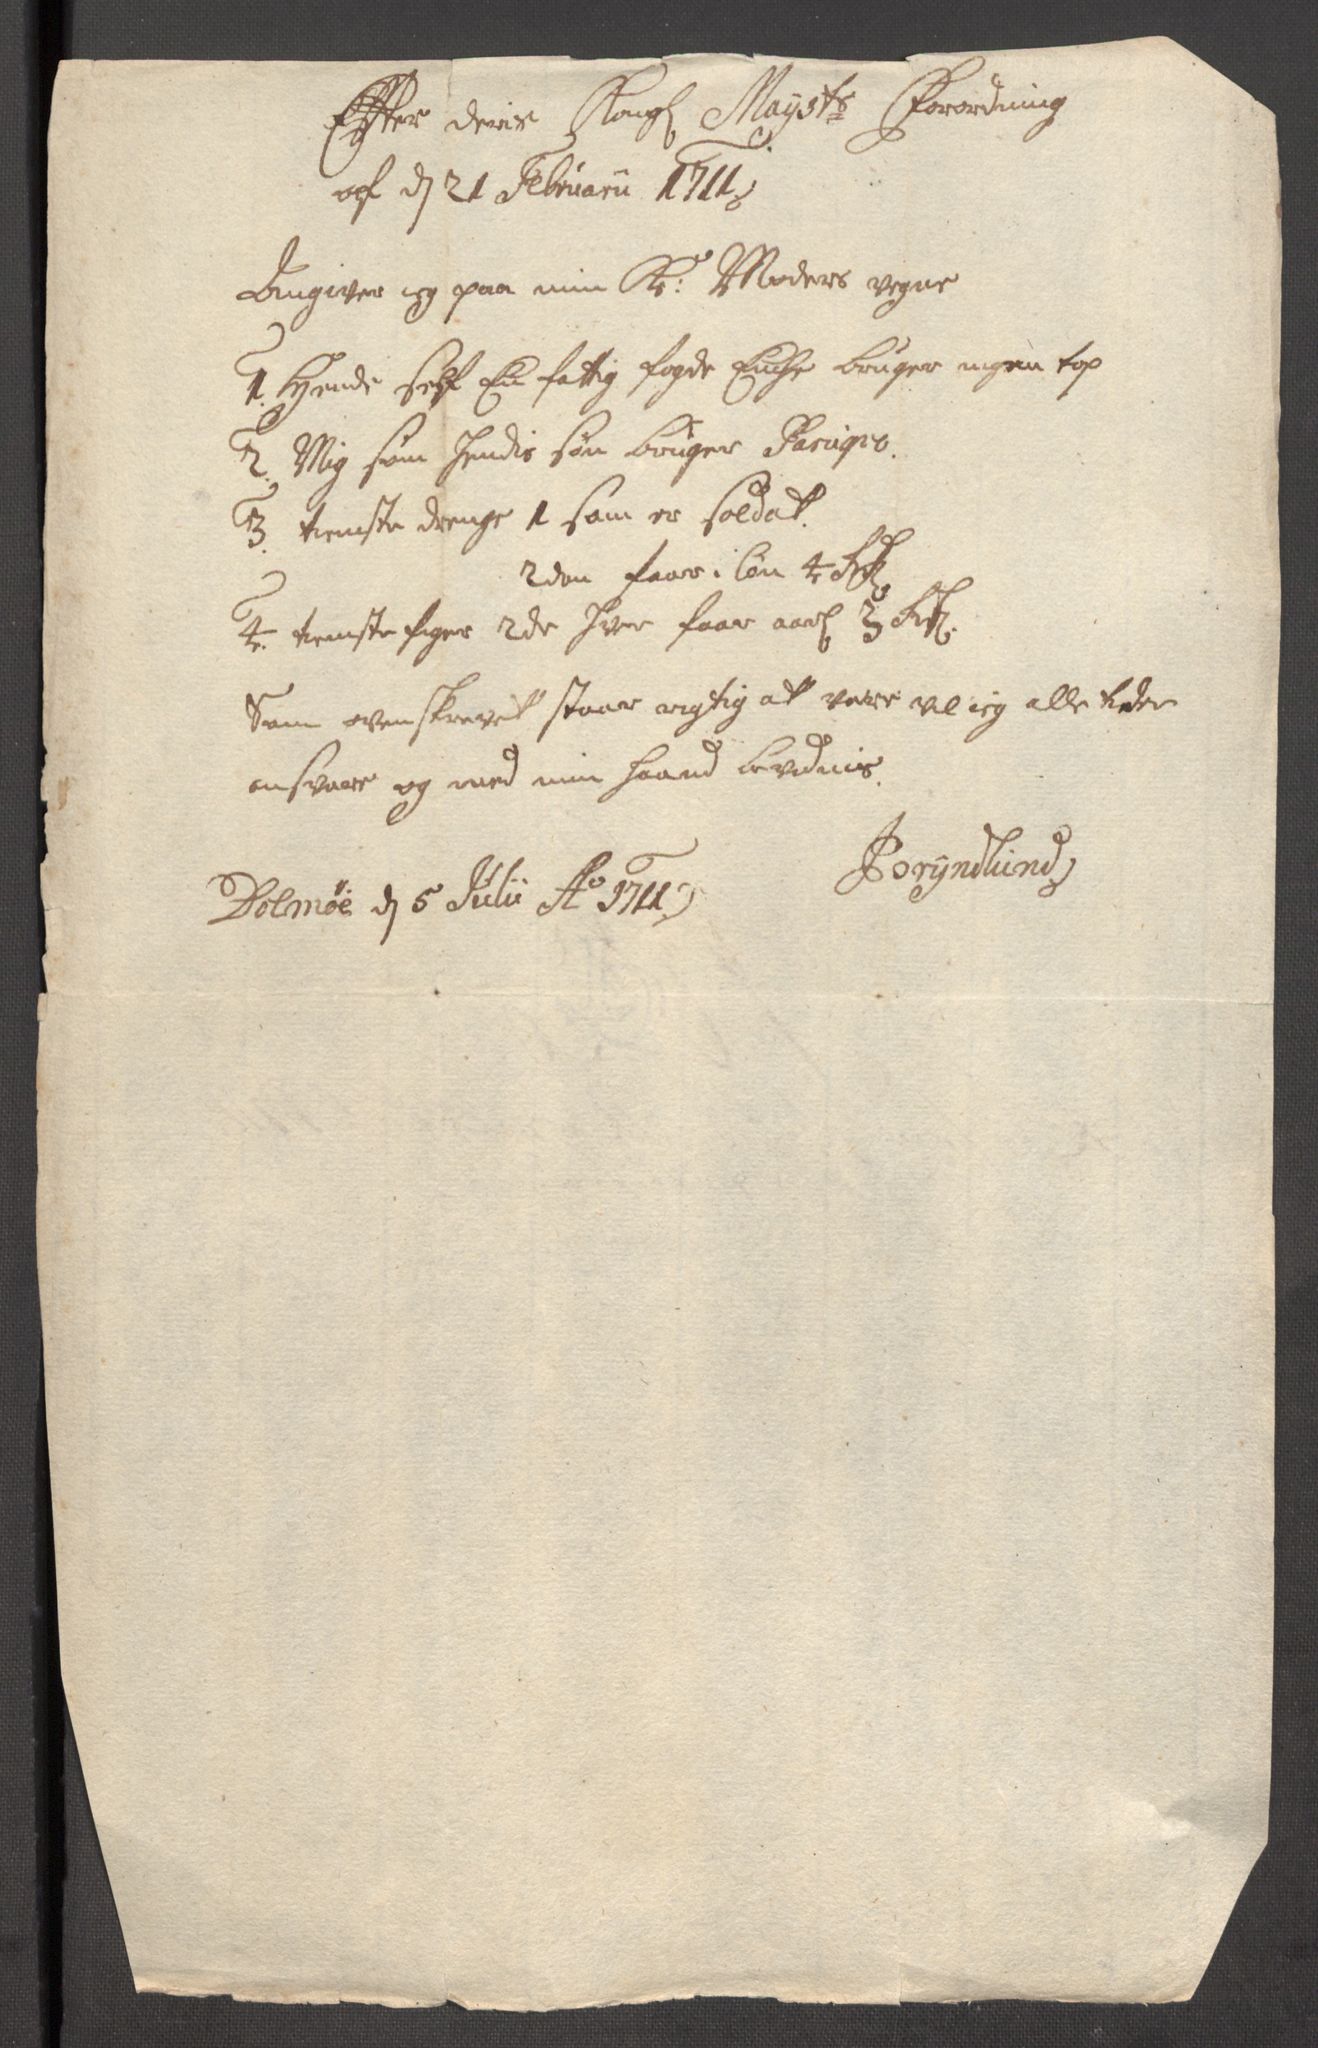 Effter deris Kongl Mayst&s Forordning
af d 21 Februarii 1711
Angiver ieg paa min K: Moders vegne
1. Hende self En fattig fogde Enche bruger ingen top
2. Mig som hendis søn bruger Paruqve.
3. tieniste drenge 1 som er soldat.
2den faar i løn 4 Rd
4. tieniste piger 2de hver faar aarl 3 Rd.
Som ovenskrevet staar rigtig at være vil ieg alle tider
ansvare og med min haand bevidnis.
Dolmøe d 5 Julii Ao 1711